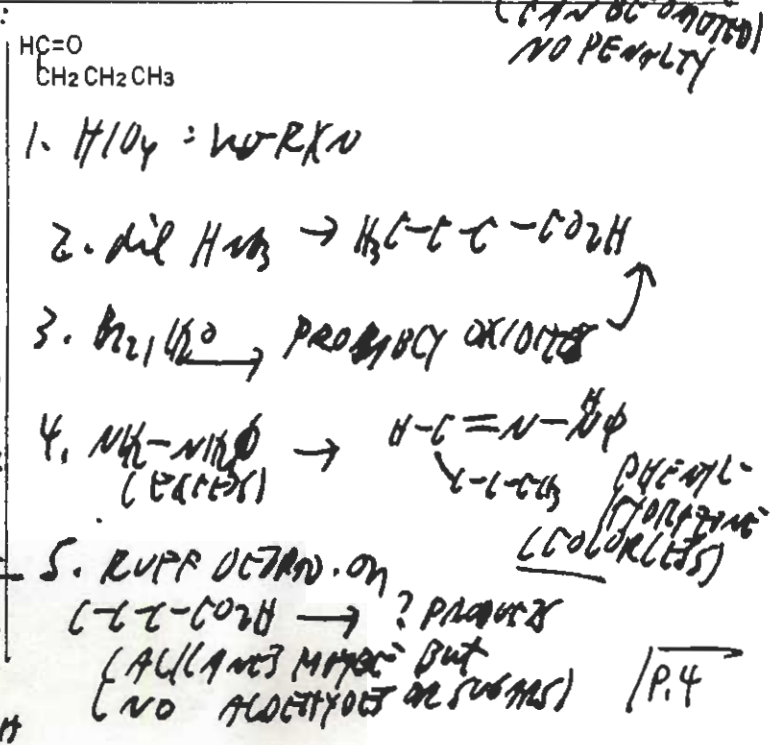 (CAN BE OMITTED)
NO PENALTY
HC=O
CH2CH2CH3
1. HIO4 : NO RXN
2. dil HNO3 → H3C-C-C-CO2H
3. Br2/H2O → PROBABLY OXIDIZES
4. NH2-NHΦ → H-C=N-NΦ
H
(EXCESS)
C-C-CH3
PHENYL-
HYDRAZONE
(COLORLESS)
5. RUFF DEGRAD. on
C-C-C-CO2H → ? PRODUCTS
(ALKANES MAYBE BUT
(NO ALDEHYDES OR SUGARS)
P.4
H